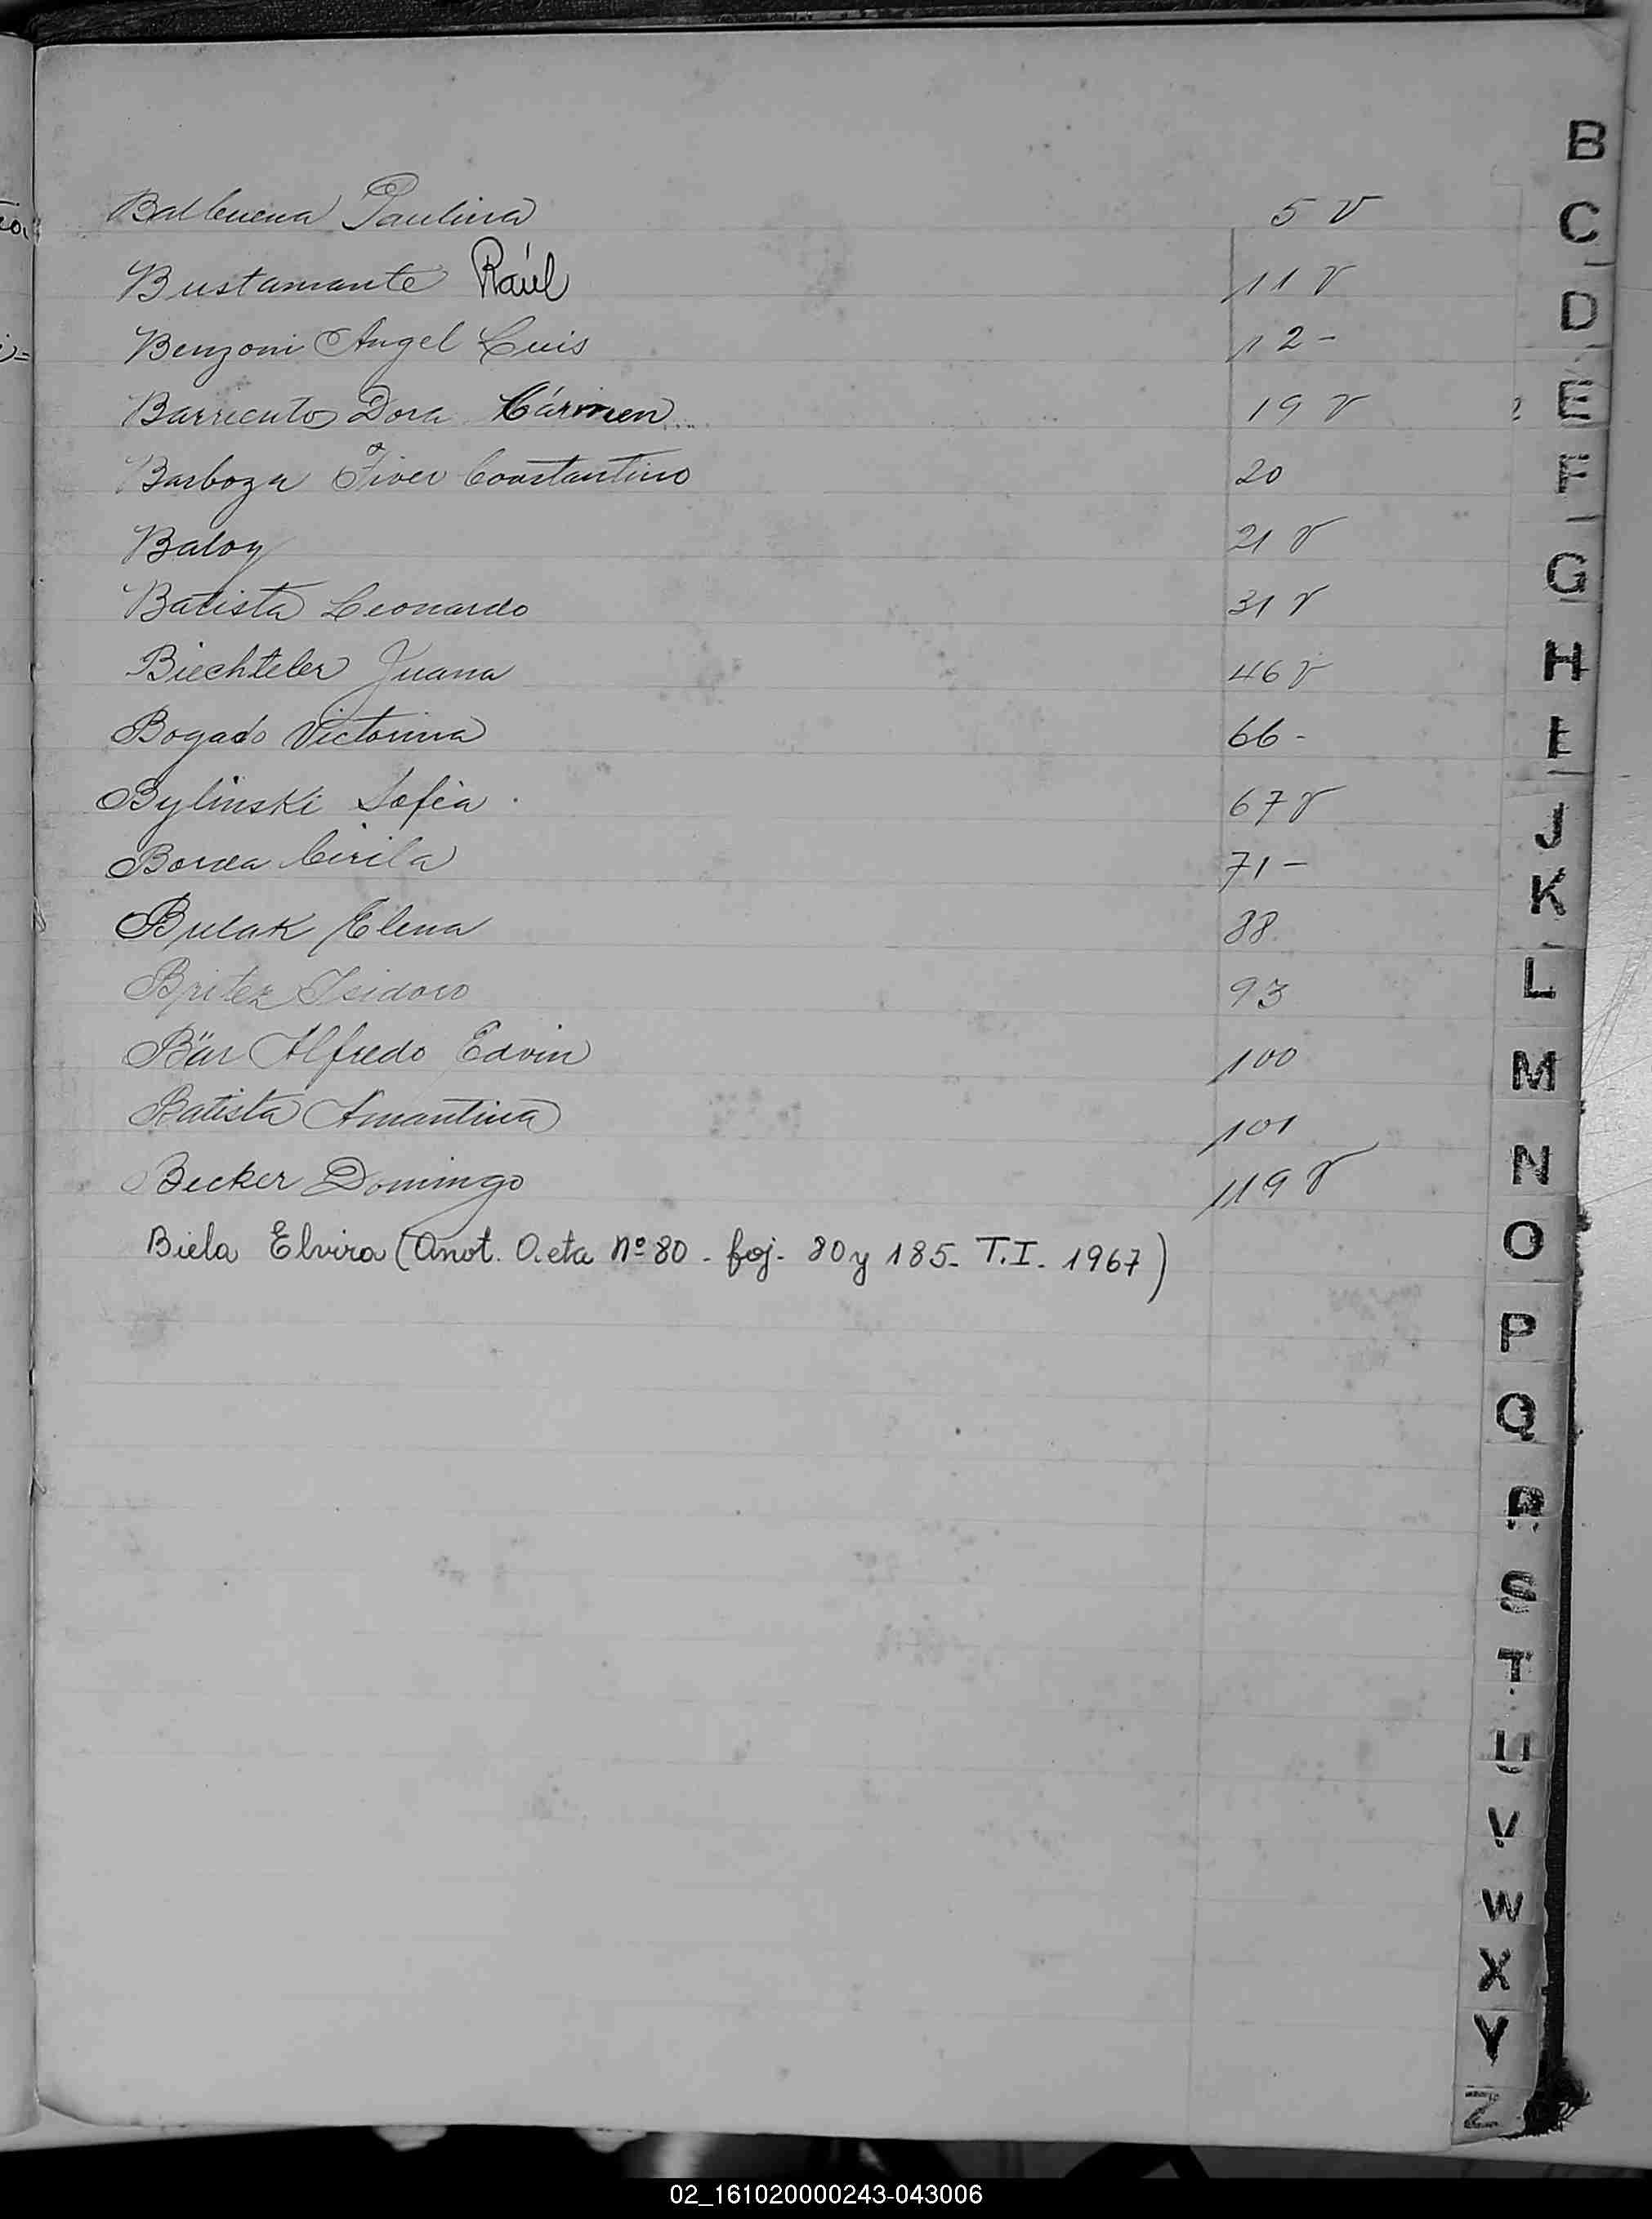 Balbuena Paulina 5 v
Bustamante Raúl 11 v
Benzoni Angel Luis 12 -
Barrientos Dora Cármen 19 v
Barboza Constantino 20
Baloy 21 v
Batista Leonardo 31 v
Biechteler Juana 46 v
Bogado Victorina 66 -
Bylinski Sofia 67 v
Cirila 71 -
Bulak Elena 88
Britez Isidoro 93
Bär Alfredo Edvin 100
Batista Amantina 101
Becker Domingo 119 v
Biela Elvira (Anot. Acta Nº 80 - foj. 80 y 185 - T.I. 1967)
B
C
D
E
F
G
H
I
J
K
L
M
N
O
P
Q
R
S
T
U
V
W
X
Y
Z
02_161020000243-043006